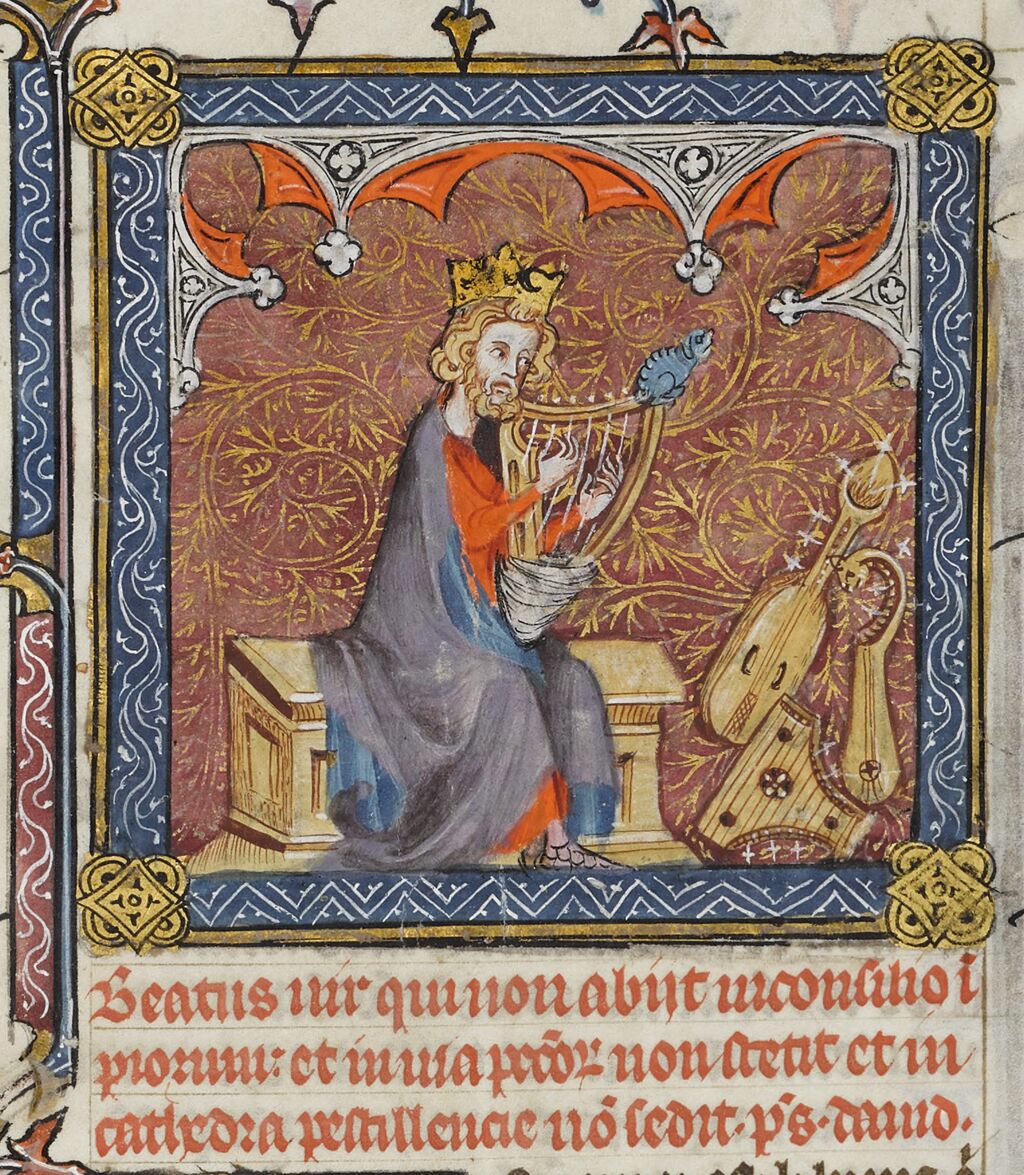 Beatus uir qui non abijt in consilio ī
piorum: et in uia pccõꝝ non stetit et in
cathedra pestilencie nō sedit. p̄s. dauid.